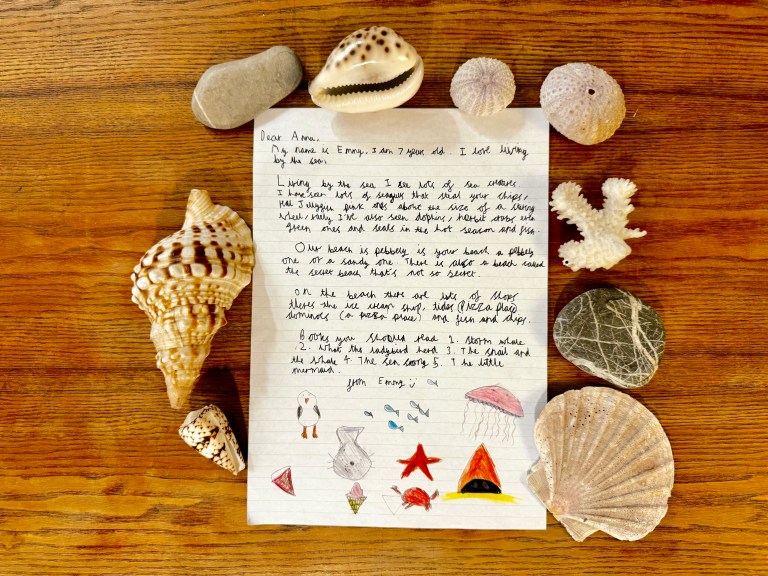 Dear Anna,
My name is Emmy, I am 7 year old. I love living
by the sea.
Living by the sea I see lots of sea
I have seen lots of seaguls that steal your chips,
pink ones about the size of a
wheel, I've also seen dophins, crabs even
green ones and seals in the hot season and fish.
Our beach is pebbely is your beach a pebbely
one or a sandy one. There is also a beach called
the secret beach that's not so secret.
On the beach there are lots of shops
theres the ice cream shop, tides (Pizza place)
dominos (a pizza place) and fish and chips.
Books you should read 1. Storm whale
2. What the ladybird herd 3. The snail and
the whale 4. The sea 5. The little
mermaid.
from Emmy